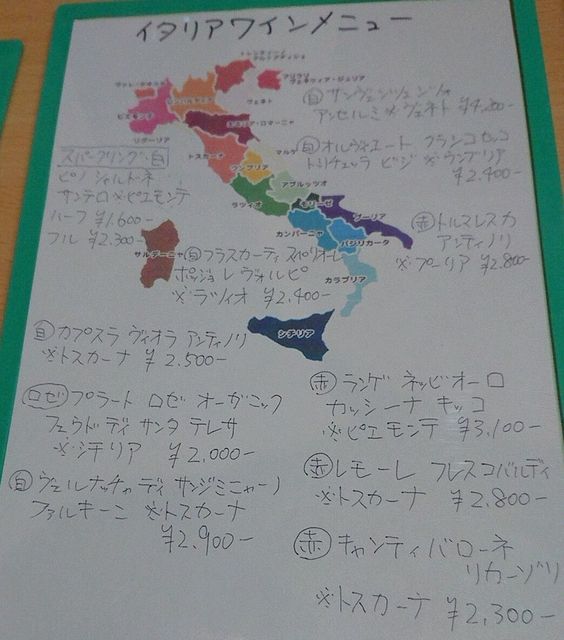 イタリアワインメニュー
トレンティーノ
アルトアディジェ
フリウリ
ヴェネツィア・ジュリア
ロンバルディア
ヴェネト
ピエモンテ
エミリア・ロマーニャ
リグーリア
トスカーナ
マルケ
ウンブリア
アブルッツオ
ラツィオ
モリーゼ
カンパーニャ
プーリア
バジリカータ
カラブリア
サルデーニャ
シチリア
白 サンヴィンチェンツォ
アンセルミ ※ヴェネト ¥4,200-
白 オルヴィエート クラシコセッコ
※ウンブリア
¥2,400-
スパークリング・白
ピノ シャルドネ
サンテロ ※ピエモンテ
ハーフ ¥1,600-
フル ¥2,300-
赤 トルマレスカ
アンティノリ
※プーリア ¥2,800-
白 フラスカーティ スペリオーレ
ポッジョ レ ヴォルピ
※ラツィオ ¥2,400-
白 カプスラ ヴィオラ アンティノリ
※トスカーナ ¥2,500-
ロゼ プラート ロゼ オーガニック
フェウド ディ サンタ テレサ
※シチリア ¥2,000-
白 ヴェルナッチャ ディ サンジミニャーノ
ファルキーニ ※トスカーナ
¥2,900-
赤 ランゲ ネッビオーロ
カッシーナ キッコ
※ピエモンテ ¥3,100-
赤 レモーレ フレスコバルディ
※トスカーナ ¥2,800-
赤 キャンティ バローネ
リカーゾリ
※トスカーナ ¥2,300-